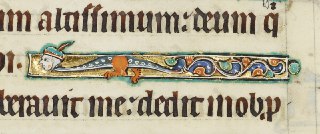 m altissimum: deum q
m.
berauit me: dedit in obp